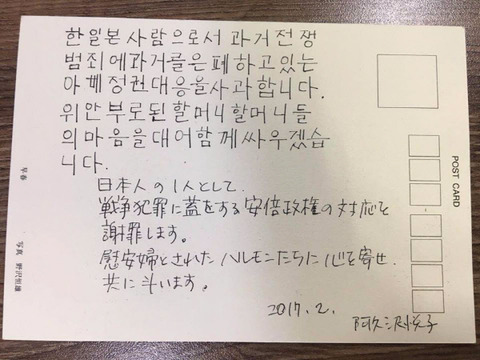 한일본사람으로서 과거전쟁
범죄에과거를은폐하고있는
아베정권대응을사과합니다.
위안부로된할머니할머니들
의마음을대어함께싸우겠습
니다.
日本人の1人として、
戦争犯罪に蓋をする安倍政権の対応を
謝罪します。
慰安婦とされたハルモニたちに心を寄せ、
共に斗います。
2017.2.
阿久沢悦子
POST CARD
早春
写真 野沢